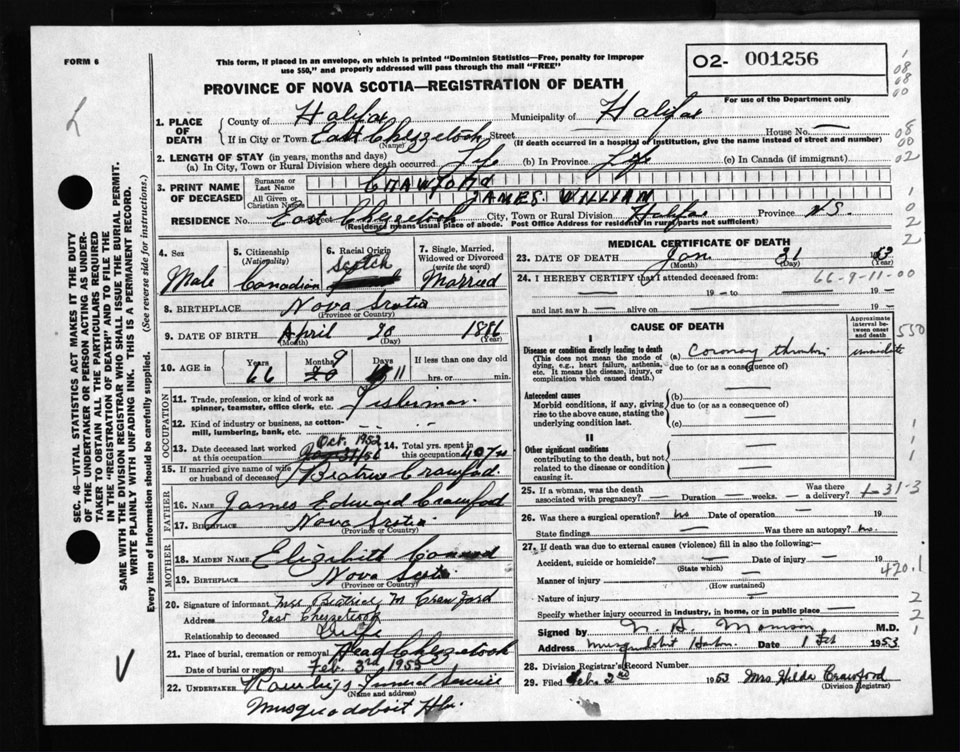 FORM 6
This form, if placed in an envelope, on which is printed "Dominion Statistics—Free, penalty for improper
use $50," and properly addressed will pass through the mail "FREE"
02- 001256
PROVINCE OF NOVA SCOTIA—REGISTRATION OF DEATH
For use of the Department only
1. PLACE OF DEATH
County of Halifax Municipality of Halifax
If in City or Town East Chezzetcook Street House No. —
(Name) (If death occurred in a hospital or institution, give the name instead of street and number)
2. LENGTH OF STAY (in years, months and days)
(a) In City, Town or Rural Division where death occurred Life (b) In Province Life (c) In Canada (if immigrant)
3. PRINT NAME OF DECEASED
Surname or Last Name CRAWFORD
All Given or Christian Names JAMES WILLIAM
RESIDENCE No. Street East Chezzetcook City, Town or Rural Division Halifax Province N.S.
(Residence means usual place of abode. Post Office Address for residents in rural parts not sufficient)
4. Sex Male
5. Citizenship (Nationality) Canadian
6. Racial Origin Scotch
7. Single, Married, Widowed or Divorced (write the word) Married
8. BIRTHPLACE Nova Scotia
(Province or Country)
9. DATE OF BIRTH April 20 1886
(Month) (Day) (Year)
10. AGE in Years 66 Months 9 Days 11 If less than one day old
hrs. or min.
OCCUPATION
11. Trade, profession, or kind of work as
spinner, teamster, office clerk, etc. Fisherman
12. Kind of industry or business, as cotton-
mill, lumbering, bank, etc. —
13. Date deceased last worked at this occupation Oct. 1952
14. Total yrs. spent in this occupation 40 yrs
15. If married give name of wife
or husband of deceased Beatrice Crawford.
FATHER
16. NAME James Edward Crawford
17. BIRTHPLACE Nova Scotia
(Province or Country)
MOTHER
18. MAIDEN NAME Elizabeth
19. BIRTHPLACE Nova Scotia
(Province or Country)
20. Signature of informant Mrs Beatrice M Crawford
Address East Chezzetcook
Relationship to deceased Wife
21. Place of burial, cremation or removal Head Chezzetcook
Date of burial or removal Feb. 3rd, 1953
22. UNDERTAKER Funeral Service
(Name and address)
Musquodoboit Hbr.
MEDICAL CERTIFICATE OF DEATH
23. DATE OF DEATH Jan 31 1953
(Month) (Day) (Year)
66-9-11-00
24. I HEREBY CERTIFY that I attended deceased from:
19 to 19
and last saw h alive on 19
CAUSE OF DEATH
Approximate interval between onset and death
I
Disease or condition directly leading to death (a) Coronary immediate
(This does not mean the mode of dying, e.g., heart failure, asthenia, etc. It means the disease, injury, or complication which caused death.)
due to (or as a consequence of)
Antecedent causes (b)
Morbid conditions, if any, giving rise to the above cause, stating the underlying condition last.
due to (or as a consequence of)
(c)
II
Other significant conditions
contributing to the death, but not related to the disease or condition causing it.
25. If a woman, was the death associated with pregnancy? — Duration — weeks. — Was there a delivery?
1-31-3
26. Was there a surgical operation? no Date of operation —
State findings — Was there an autopsy? no.
27. If death was due to external causes (violence) fill in also the following:—
Accident, suicide or homicide? — Date of injury — 19
(State which)
420.1
Manner of injury —
(How sustained)
Nature of injury —
Specify whether injury occurred in industry, in home, or in public place —
Signed by M.D.
Address Musquodoboit Harbour Date 1 Feb 1953
28. Division Registrar's Record Number
29. Filed Feb. 2nd 1953 Mrs Hilda Crawford
(Division Registrar)
SEC. 46—VITAL STATISTICS ACT MAKES IT THE DUTY
OF THE UNDERTAKER OR PERSON ACTING AS UNDER-
TAKER TO OBTAIN ALL THE PARTICULARS REQUIRED
IN THE "REGISTRATION OF DEATH" AND TO FILE THE
SAME WITH THE DIVISION REGISTRAR WHO SHALL ISSUE THE BURIAL PERMIT.
WRITE PLAINLY WITH UNFADING INK. THIS IS A PERMANENT RECORD.
Every item of information should be carefully supplied. (See reverse side for instructions.)